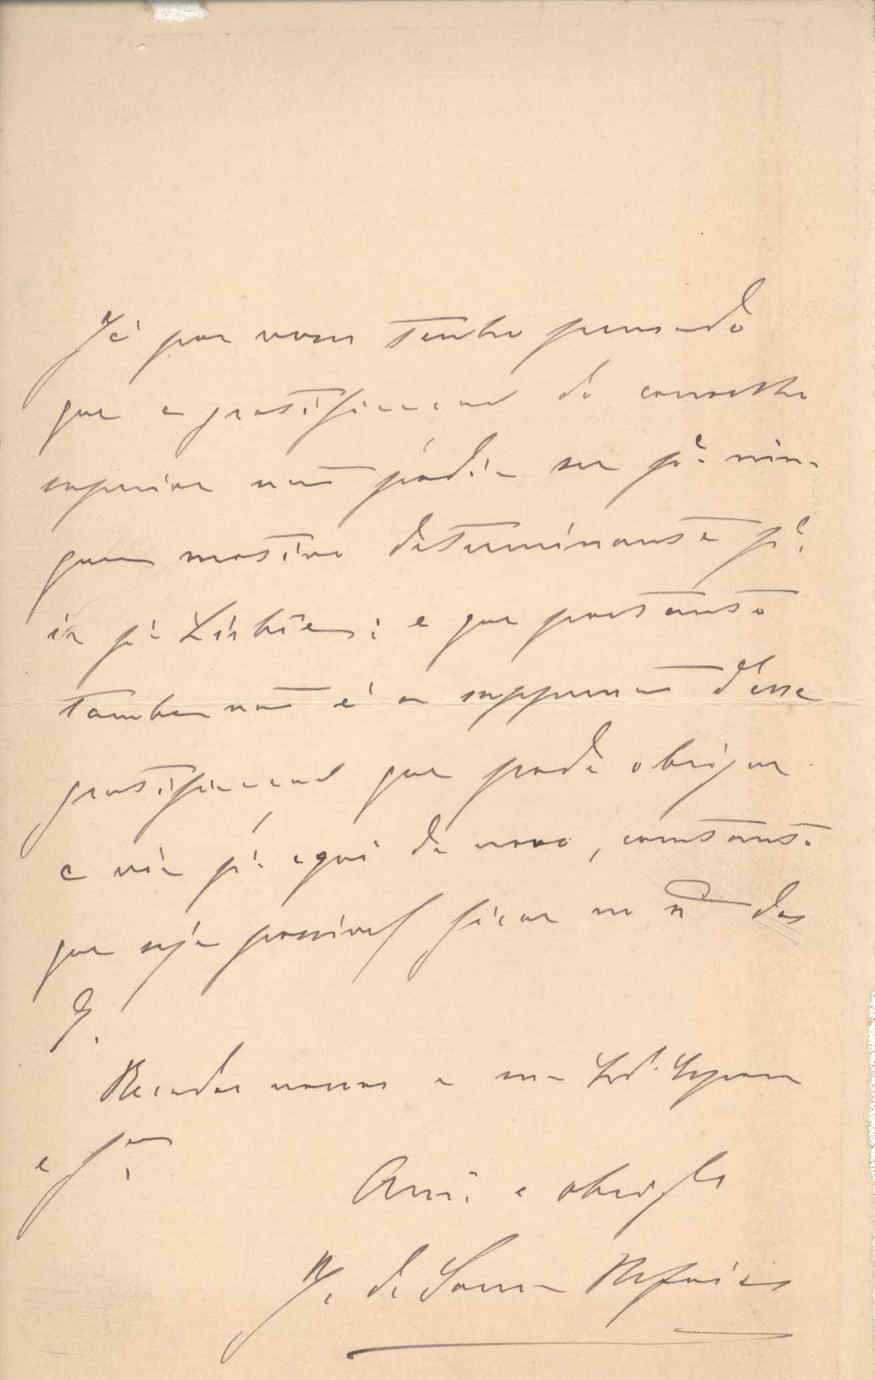 Já por vezes tenho pensado
que a gratificacao do conselho
superior nao pódia ser pª. nin-
guem motivo determinante pª.
ir pª Lisboa; e que portanto
tambem nao é a suppressao d'essa
gratificacao que pode obrigar
a vir pª. aqui de novo, comtanto
que seja possivel ficar no nº dos
Recados nossos a sua Esposa
e
Amº. e obrigdo
J. de Sousa Refoios